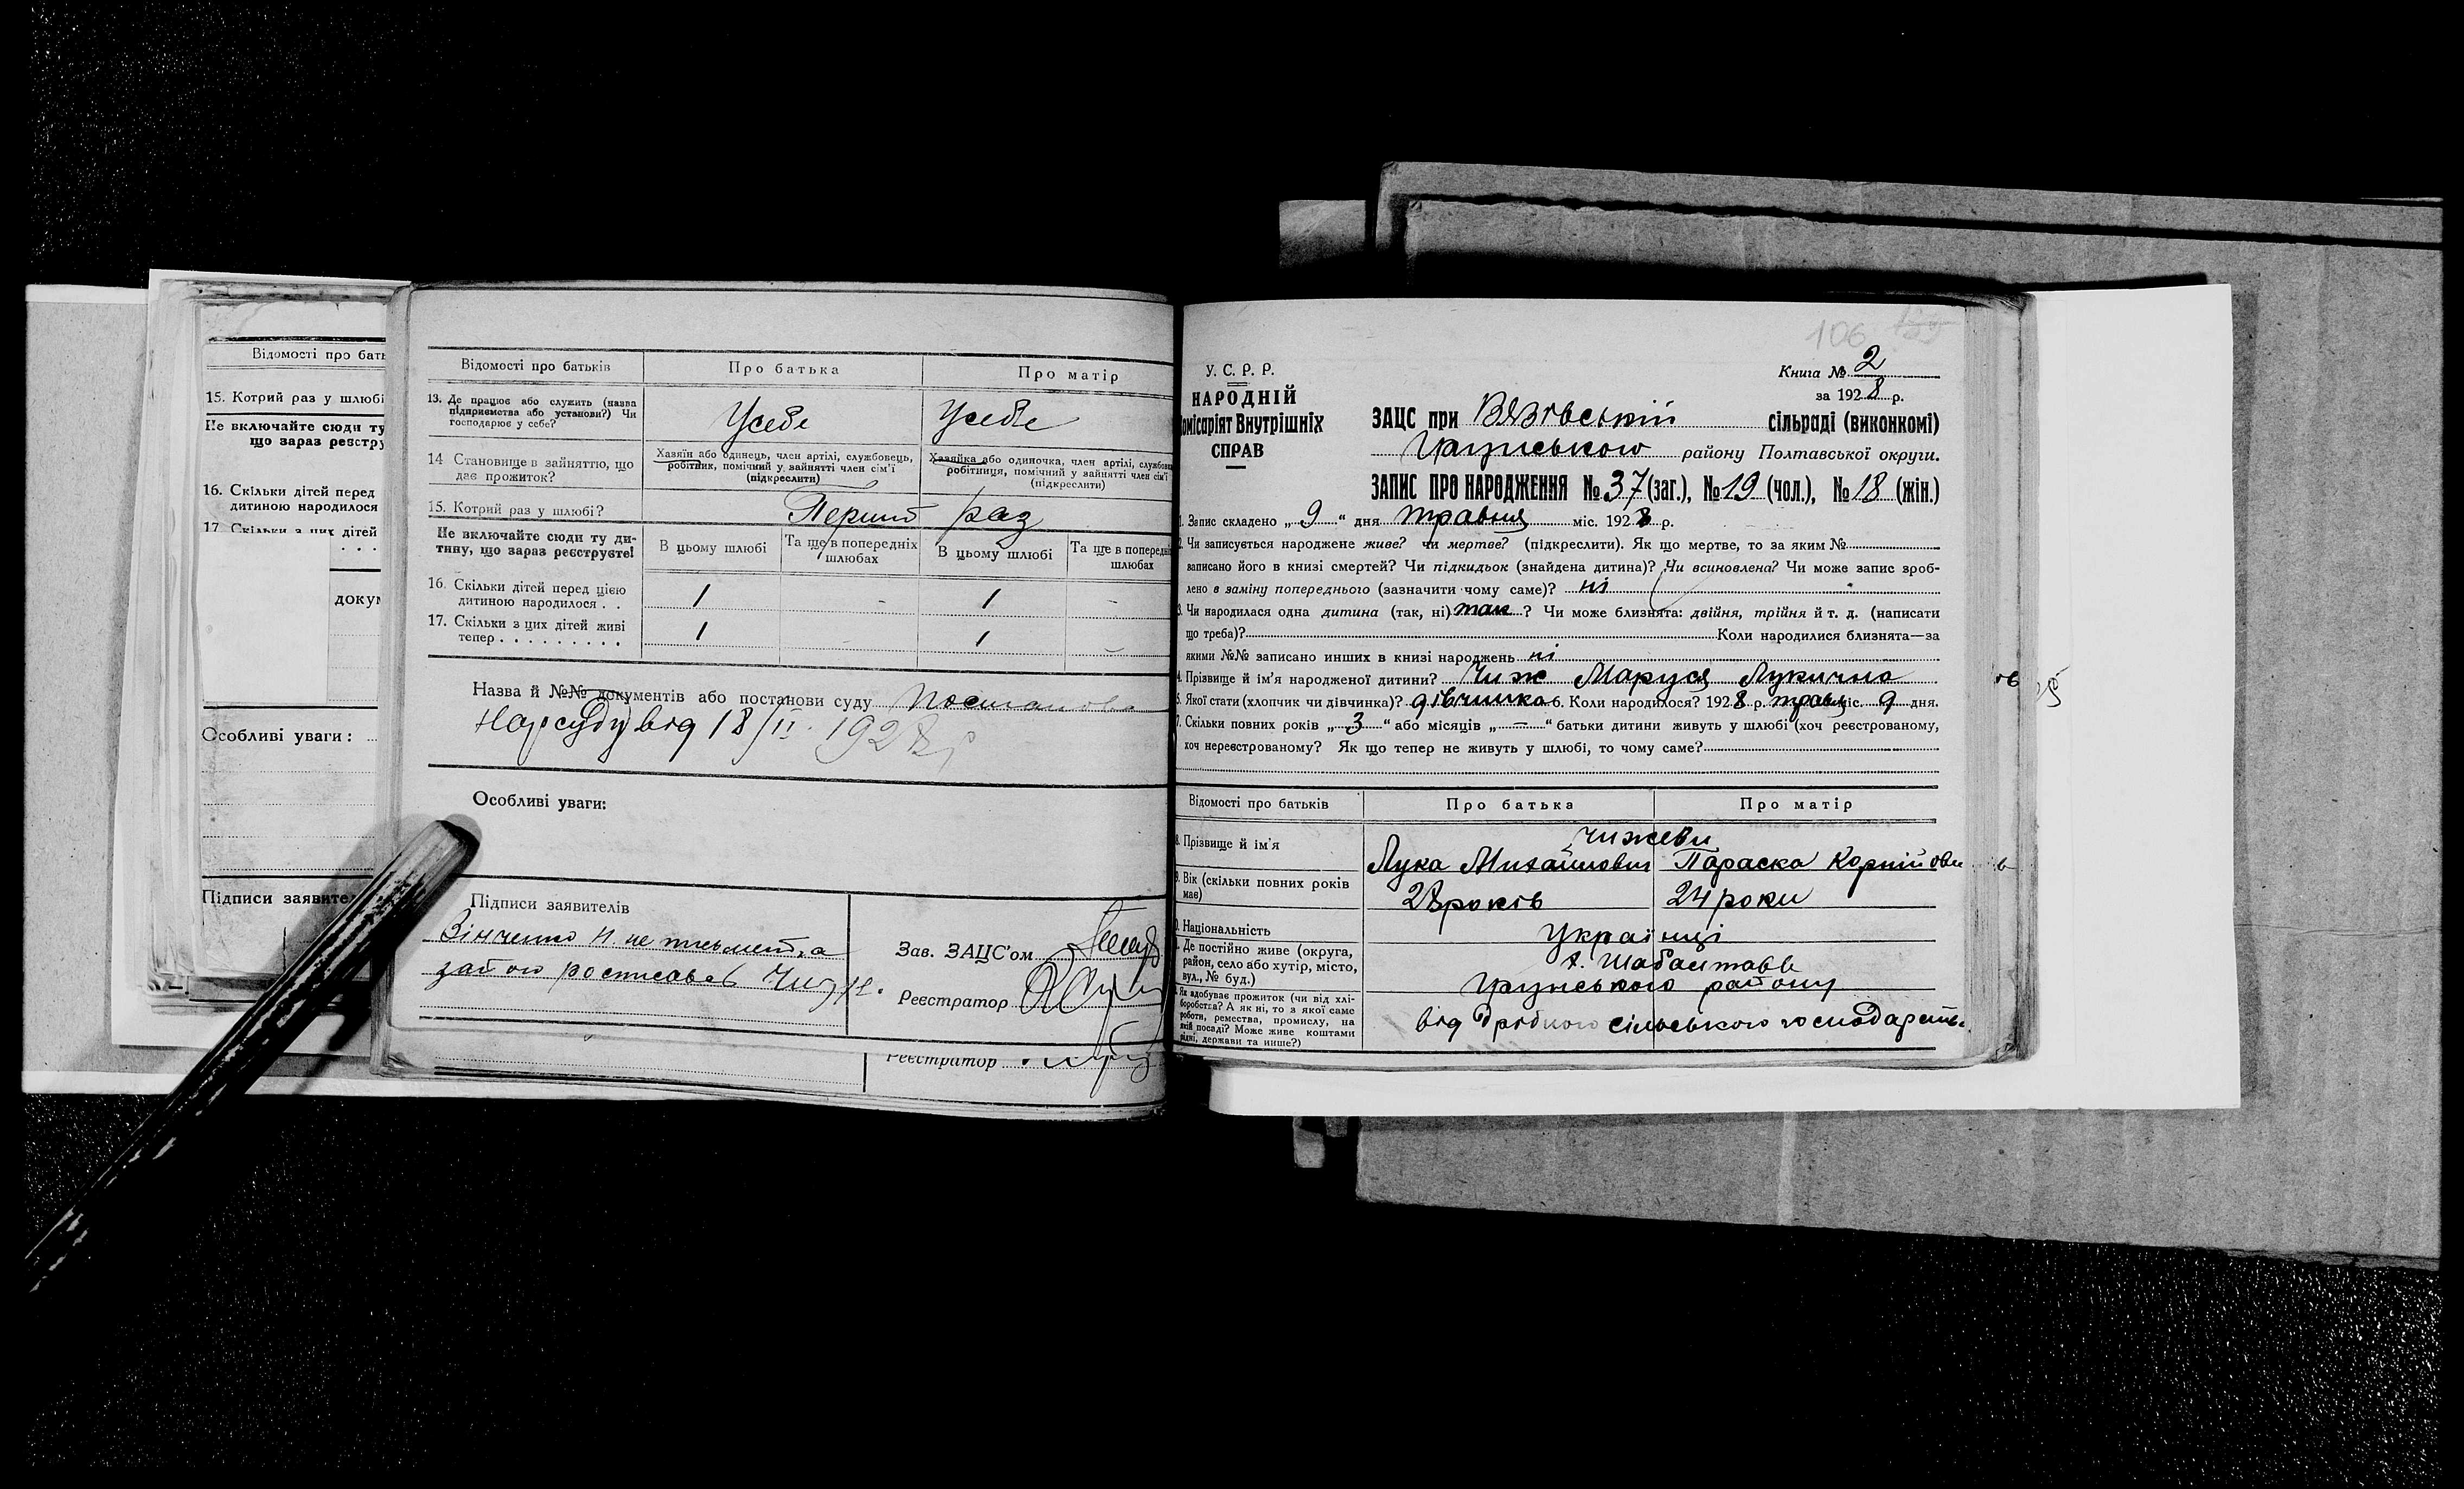 Відомості про бать
15. Котрий раз у шлюбі
Не включайте сюди ту
що зараз реєстру
16. Скільки дітей перед
дитиною народилося
17. Скільки з цих дітей
докум
Особливі уваги:
Підписи заявите
Відомості про батьків Про батька Про матір
13. Де працює або служить (назва підприємства або установи?) Чи господарює у себе? Усебе Усебе
14 Становище в зайняттю, що дає прожиток? Хазяїн або одинець, член артілі, службовець, робітник, помічний у зайнятті член сім'ї (підкреслити) Хазяйка або одиночка, член артілі, службов робітниця, помічний у зайнятті член сім'ї (підкреслити)
15. Котрий раз у шлюбі? Перший раз
Не включайте сюди ту дитину, що зараз реєструєте! В цьому шлюбі Та ще в попередніх шлюбах В цьому шлюбі Та ще в попередн шлюбах
16. Скільки дітей перед цією дитиною народилося . . 1 - 1 -
17. Скільки з цих дітей живі тепер . . . . . . . . . . 1 - 1 -
Назва й №№ документів або постанови суду Постанова
Нарсуду від 18/II 1928 р
Особливі уваги:
Підписи заявителів
Зінченко Н. не письмен, а
за його росписавсь
Зав. ЗАЦС'ом
Реєстратор
Реєстратор
106
У. С. Р. Р.
НАРОДНІЙ
омісаріят Внутрішніх
СПРАВ
Книга № 2
за 1928 р.
ЗАЦС при Вязівській сільраді (виконкомі)
Грунського району Полтавської округи.
ЗАПИС ПРО НАРОДЖЕННЯ № 37 (заг.), № 19 (чол.), № 18 (жін.)
1. Запис складено „ 9 “ дня травня міс. 1928 р.
2. Чи записується народжене живе? чи мертве? (підкреслити). Як що мертве, то за яким №
записано його в книзі смертей? Чи підкидьок (знайдена дитина)? Чи всиновлена? Чи може запис зроб-
лено в заміну попереднього (зазначити чому саме)? ні
3. Чи народилася одна дитина (так, ні) так ? Чи може близнята: двійня, трійня й т. д. (написати
що треба)? Коли народилися близнята—за
якими №№ записано инших в книзі народжень ні
4. Прізвище й ім'я народженої дитини? Чиж Маруся Лукична
5. Якої стати (хлопчик чи дівчинка)? дівчинка 6. Коли народилося? 1928 р. травн міс. 9 дня.
7. Скільки повних років „ 3 “ або місяців „ — “ батьки дитини живуть у шлюбі (хоч реєстрованому,
хоч нереєстрованому? Як що тепер не живуть у шлюбі, то чому саме?
Відомості про батьків Про батька Про матір
8. Прізвище й ім'я Чижеви
Лука Михайлович Параска Корнійовн
9. Вік (скільки повних років має) 28 років 24 роки
Національність Українці
Де постійно живе (округа, район, село або хутір, місто, вул., № буд.) х.
Грунського району
Як здобуває прожиток (чи від хліборобства? А як ні, то з якої саме роботи, ремества, промислу, на якій посаді? Може живе коштами рідні, держави та инше?) від дрібного сільського господарств